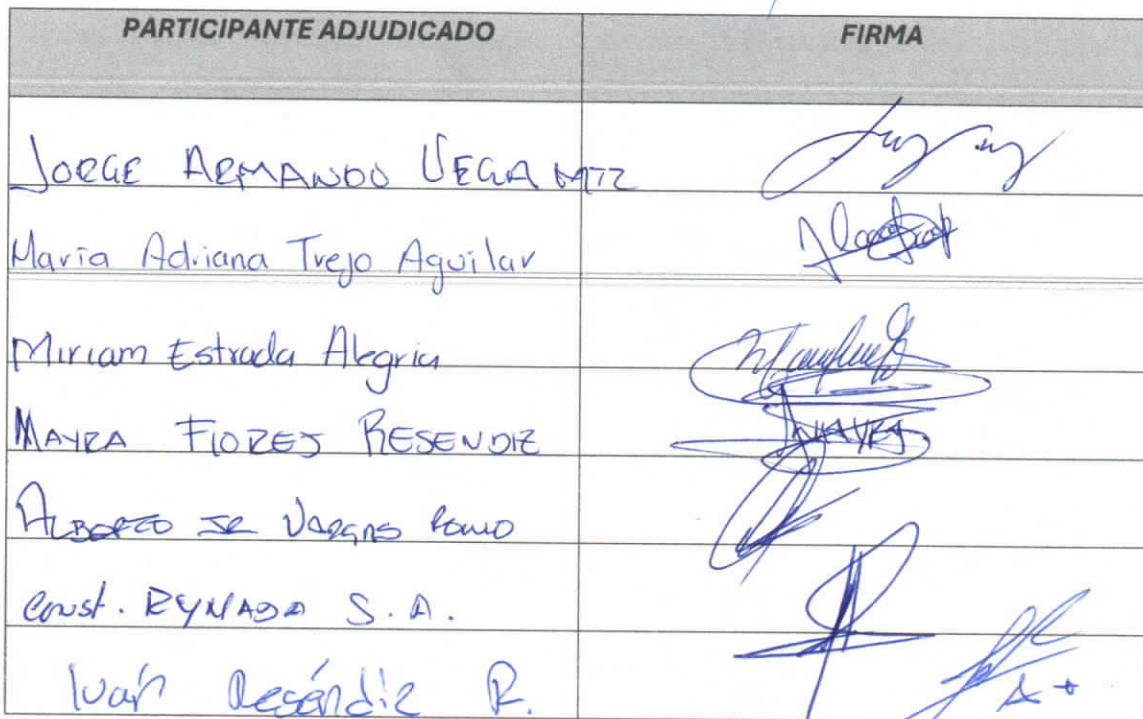 PARTICIPANTE ADJUDICADO FIRMA
JORGE ARMANDO VEGA MTZ
María Adriana Trejo Aguilar
Miriam Estrada Alegria
MAYRA FLORES RESENDIZ
ALBERTO JR VARGAS
Const. S.A.
Iván Reséndiz R.